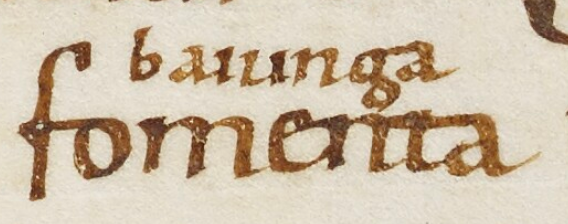 baiunga
fomenta